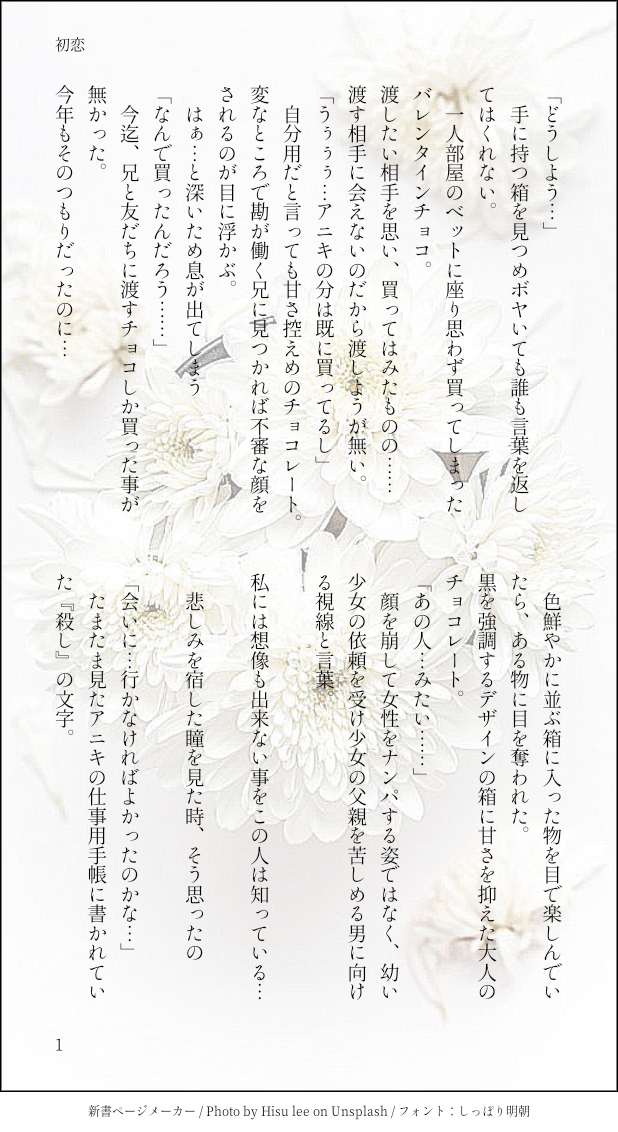 初恋
「どうしよう…」
　手に持つ箱を見つめボヤいても誰も言葉を返し
てはくれない。
　一人部屋のベットに座り思わず買ってしまった
バレンタインチョコ。
渡したい相手を思い、買ってはみたものの……
渡す相手に会えないのだから渡しようが無い。
「うぅぅぅ…アニキの分は既に買ってるし」
　自分用だと言っても甘さ控えめのチョコレート。
変なところで勘が働く兄に見つかれば不審な顔を
されるのが目に浮かぶ。
　はぁ…と深いため息が出てしまう
「なんで買ったんだろう……」
　今迄、兄と友だちに渡すチョコしか買った事が
無かった。
今年もそのつもりだったのに…
　色鮮やかに並ぶ箱に入った物を目で楽しんでい
たら、ある物に目を奪われた。
黒を強調するデザインの箱に甘さを抑えた大人の
チョコレート。
「あの人…みたい……」
　顔を崩して女性をナンパする姿ではなく、幼い
少女の依頼を受け少女の父親を苦しめる男に向け
る視線と言葉
私には想像も出来ない事をこの人は知っている…
　悲しみを宿した瞳を見た時、そう思ったの
「会いに…行かなければよかったのかな…」
　たまたま見たアニキの仕事用手帳に書かれてい
た『殺し』の文字。
1
新書ページメーカー / Photo by Hisu lee on Unsplash / フォント：しっぽり明朝